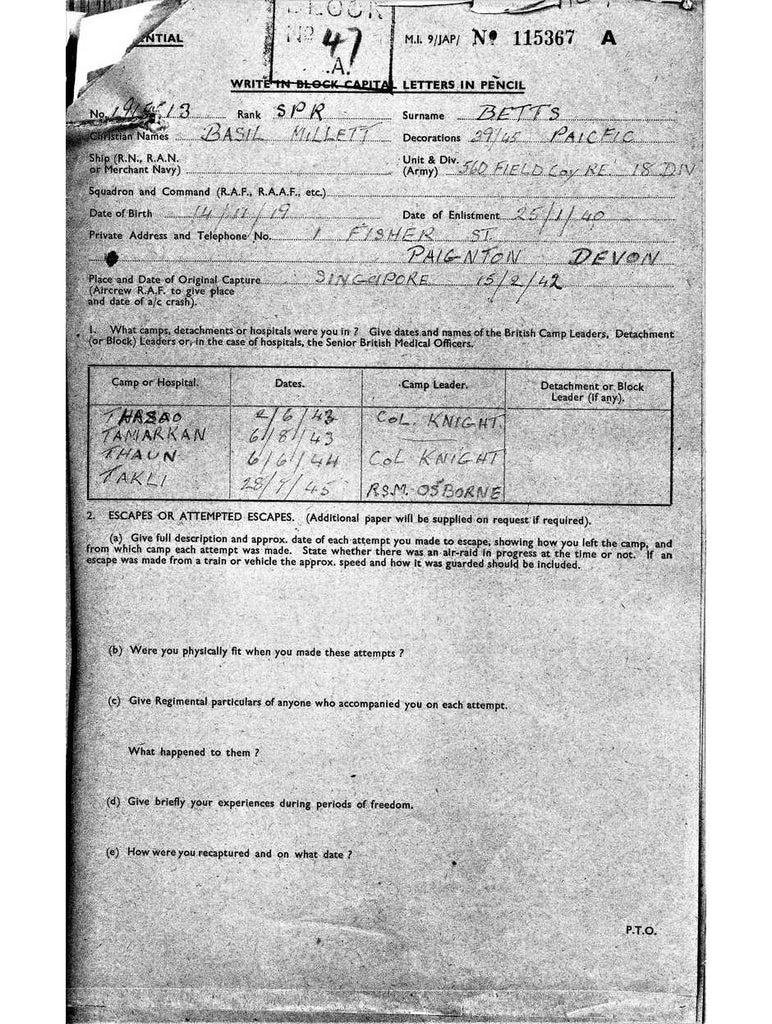 ENTIAL
BLOCK
Nº 47
.A.
M.I. 9/JAP/ Nº 115367 A
WRITE IN BLOCK CAPITAL LETTERS IN PENCIL
No. 13 Rank SPR Surname BETTS
Christian Names BASIL MILLETT Decorations 39/45 PAICFIC
Ship (R.N., R.A.N. or Merchant Navy)
Unit & Div. (Army) 560 FIELD Coy RE. 18 DIV
Squadron and Command (R.A.F., R.A.A.F., etc.)
Date of Birth 14/11/19 Date of Enlistment 25/1/40
Private Address and Telephone No. 1 FISHER ST
PAIGNTON DEVON
Place and Date of Original Capture SINGAPORE 15/2/42
(Aircrew R.A.F. to give place
and date of a/c crash).
1. What camps, detachments or hospitals were you in ? Give dates and names of the British Camp Leaders, Detachment
(or Block) Leaders or, in the case of hospitals, the Senior British Medical Officers.
Camp or Hospital. Dates. Camp Leader. Detachment or Block
Leader (if any).
THASAO 2/6/43 COL. KNIGHT
TAMARKAN 6/8/43
THAUN 6/6/44 COL KNIGHT
TAKLI 28/ /45 R.S.M. OSBORNE
2. ESCAPES OR ATTEMPTED ESCAPES. (Additional paper will be supplied on request if required).
(a) Give full description and approx. date of each attempt you made to escape, showing how you left the camp, and
from which camp each attempt was made. State whether there was an air-raid in progress at the time or not. If an
escape was made from a train or vehicle the approx. speed and how it was guarded should be included.
(b) Were you physically fit when you made these attempts ?
(c) Give Regimental particulars of anyone who accompanied you on each attempt.
What happened to them ?
(d) Give briefly your experiences during periods of freedom.
(e) How were you recaptured and on what date ?
P.T.O.